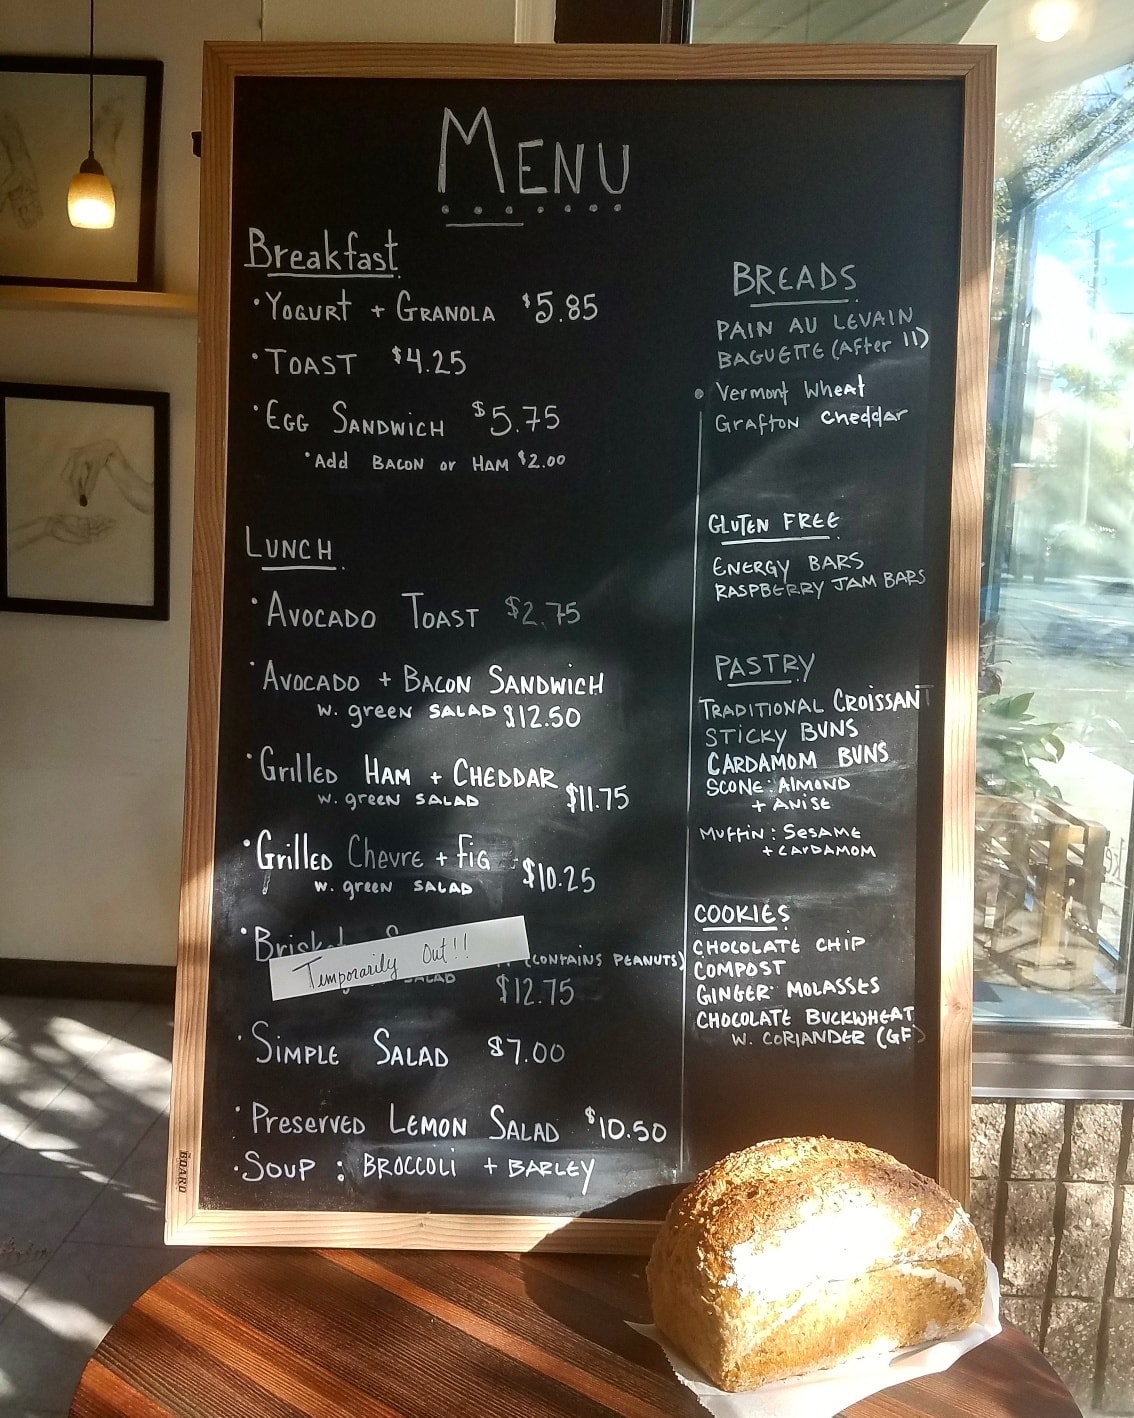 MENU
Breakfast
• YOGURT + GRANOLA $5.85
• TOAST $4.25
• EGG SANDWICH $5.75
• Add BACON or HAM $2.00
LUNCH
• AVOCADO TOAST $2.75
• AVOCADO + BACON SANDWICH
w. green SALAD $12.50
• Grilled HAM + CHEDDAR
w. green SALAD $11.75
• Grilled Chevre + Fig $10.25
w. green SALAD
Temporarily Out!!
(CONTAINS PEANUTS)
SALAD
$12.75
• SIMPLE SALAD $7.00
• Preserved LEMON SALAD $10.50
• SOUP : BROCCOLI + BARLEY
BREADS
PAIN AU LEVAIN
BAGUETTE (After 11)
• Vermont Wheat
Grafton Cheddar
GLUTEN FREE
ENERGY BARS
RASPBERRY JAM BARS
PASTRY
TRADITIONAL CROISSANT
STICKY BUNS
CARDAMOM BUNS
SCONE: ALMOND
+ ANISE
MUFFIN: SESAME
+ CARDAMOM
COOKIES
CHOCOLATE CHIP
COMPOST
GINGER MOLASSES
CHOCOLATE BUCKWHEAT
W. CORIANDER (GF)
BOARD